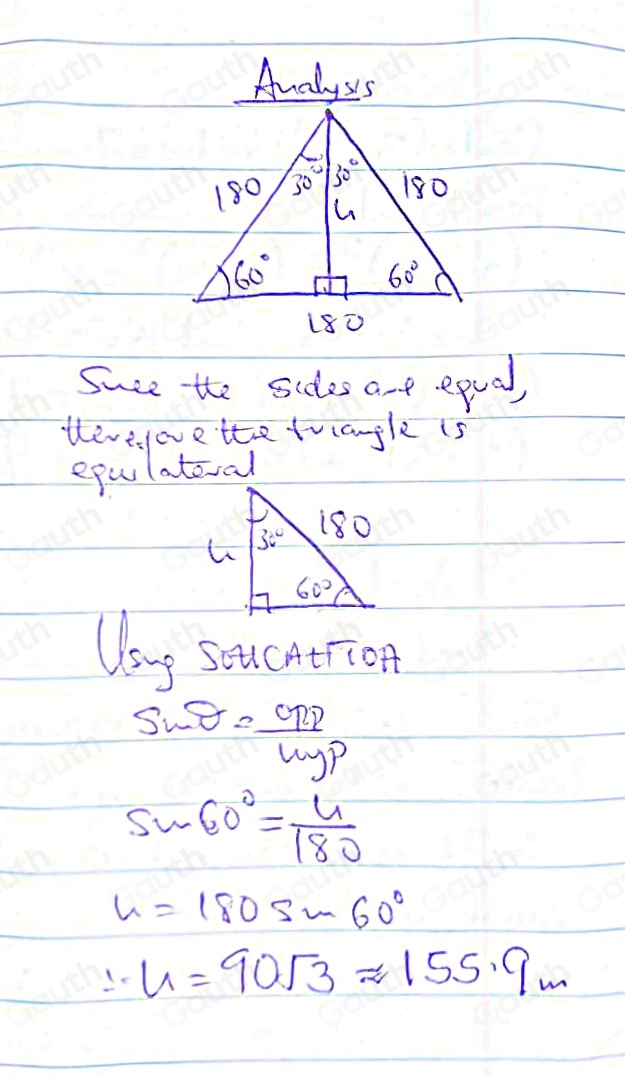 Analysis
30° 30°
180 h 180
60° 60°
180
Since the sides are equal,
therefore the triangle is
equilateral
180
h 30°
60°
Using SOHCAHTOA
Sinθ = opp
hyp
Sin 60° = h
180
h = 180 sin 60°
∴ h = 90√3 ≈ 155.9m